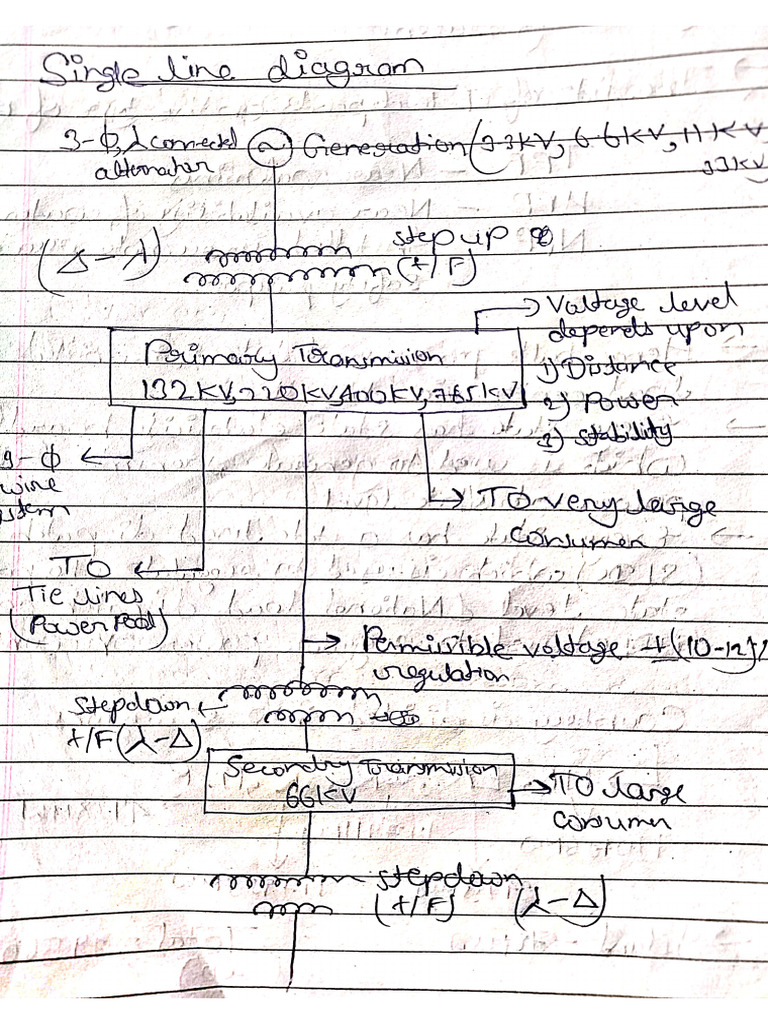 Single line diagram
3-ϕ, ⅄ connected
alternator
~
Generation (3.3KV, 6.6KV, 11KV
33KV
(Δ-⅄)
step up
(t/F)
Primary Transmission
132KV, 220KV, 400KV, 765KV
Voltage level
depends upon
1) Distance
2) Power
3) stability
3-ϕ
wire
stem
TO very large
consumer
TO
Tie lines
(Power Pool)
Permissible voltage ±(10-12)%
regulation
stepdown
t/F (⅄-Δ)
Secondry Transmission
66KV
TO large
consumer
stepdown
(t/F) (⅄-Δ)